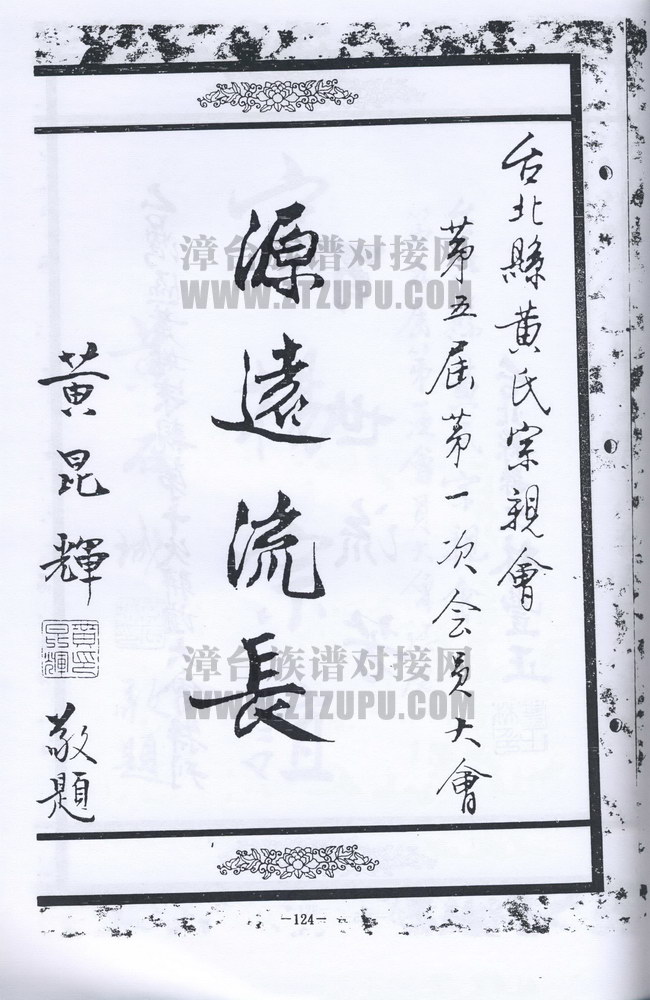 台北縣黄氏宗親會
第五届第一次会员大會
源遠流長
黄昆輝
敬題
漳台族谱对接网
WWW.ZTZUPU.COM
漳台族谱对接网
WWW.ZTZUPU.COM
-124-